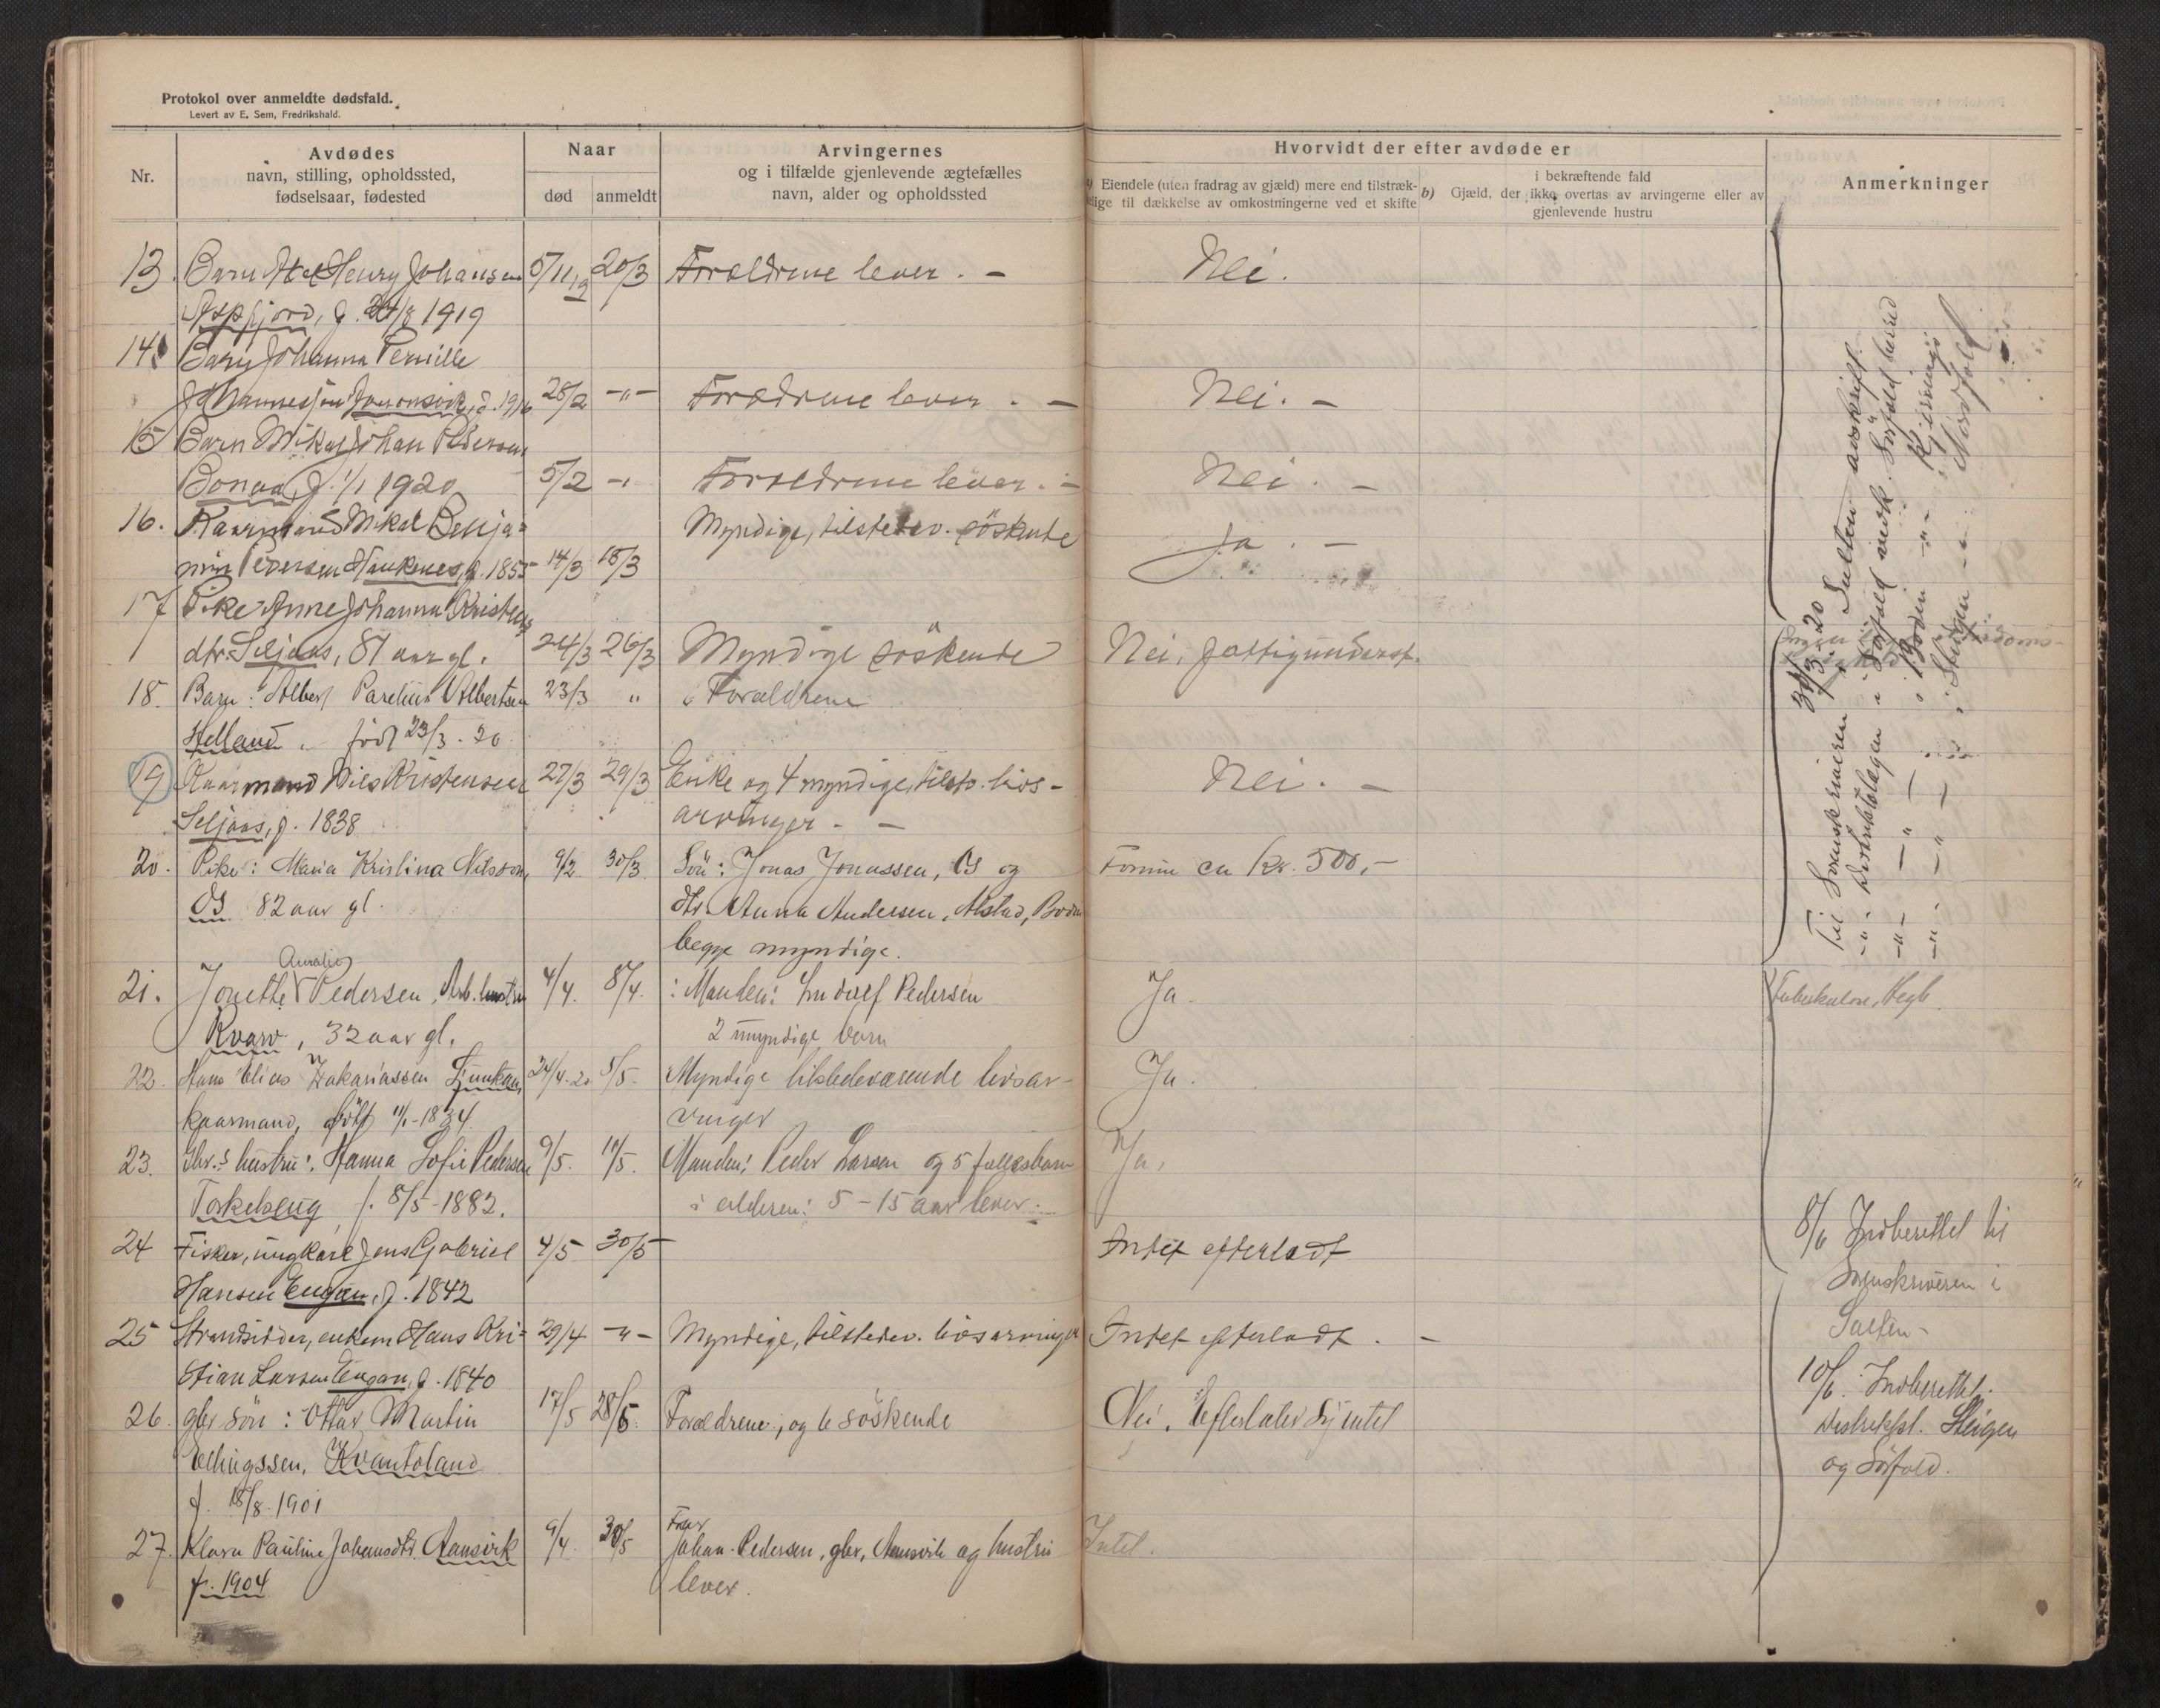 Protokol over anmeldte dødsfald.
Levert av E. Sem, Fredrikshald.
Nr.
Avdødes
navn, stilling, opholdssted,
fødselsaar, fødested
Naar
død
anmeldt
Arvingernes
og i tilfælde gjenlevende ægtefælles
navn, alder og opholdssted
Hvorvidt der efter avdøde er
Eiendele (uten fradrag av gjæld) mere end tilstræk-
lige til dækkelse av omkostningerne ved et skifte
i bekræftende fald
b) Gjæld, der ikke overtas av arvingerne eller av
gjenlevende hustru
Anmerkninger
13. Barn Henry Johansen 5/11 19 20/3 Forældrene lever. - Nei.
Aspfjord, f. 1919
14. Barn Johanna Pernille
Johannesen f. 1916 28/2 -"- Forældrene lever. - Nei. -
15 Barn Mikal Johan Pedersen
Bonaa, f. 1/1 1920 5/2 -" Forældrene lever. - Nei. -
16. Kaarmand Mikal Benja- Myndige, tilstedev. söskende
min Pedersen Haukenes, f. 1855 14/3 18/3 Ja. -
17 Pike Anne Johanna Kristens
dtr. Seljaas, 81 aar gl. 24/3 26/3 Myndige söskende Nei, fattigunderst.
18. Barn: Albert Parelius Albertsen 23/3 " Forældrene
Helland. född 23/3 - 20
19 Kaarmand Nils Kristensen 27/3 29/3 Enke og 4 myndige, tilst. livs- Nei. -
Seljaas, f. 1838 arvinger. -
20. Pike: Maria Kristina Nilsson, 9/2 30/3. Sön: Jonas Jonassen, OS og Formue ca Kr. 500,-
OS 82 aar gl. dtr. Anna Andersen, Alstad, Bodin
begge myndige.
Auralia
21. Jonette Pedersen, Arb. hustru 4/4. 8/4. : Manden: Ludolf Pedersen Ja. Tuberkulose,
Kvarv, 32 aar gl. 2 umyndige barn
22. Hans Elias Zakariassen Funkan, 24/4-20 5/5. Myndige tilstedeværende livsar- Ja.
kaarmand, född 11/1-1834. vinger
23. Gbr.s hustru: Hanna Sofie Pedersen 9/5. 11/5. Manden: Peder Larsen og 5 fællesbarn Ja.
Torkelseng f. 8/5-1882. i alderen: 5-15 aar lever.
24 Fisker, ungkarl Jens Gabriel 4/5 30/5 - Intet efterladt
Hansen Engan, f. 1842
25 Strandsidder, enkem Hans Kri- 29/4 -"- Myndige, tilstedev. livsarvinger Intet efterladt. -
stian Larsen Engan, f. 1840
26. gbr sön: Ottar Martin 17/5 28/5. Forældrene, og 6 söskende Nei. Efterlater sig intet
Ellingssen, Kvantoland
f. 18/8-1901
27. Klara Pauline Johansdtr. Aansvik 9/4. 30/5 Far Johan Pedersen, gbr, Aansvik og hustru Intet.
f. 1904 lever.
30/3-20
Til Sorenskriveren i Salten avskrift
-"- Distriktslægen i Sörfold vedk. Sörfold herred
-"- -"- i Bodin -"- Kjerringö
-"- -"- i Steigen -"- Nordfold
8/6 Indberettet til
Sorenskriveren i
Salten-
10/6. Indberettet
Distriktsl. Steigen
og Sörfold.